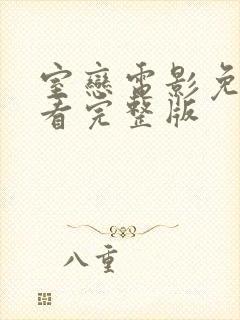 室戀電影免
看完整版
八重